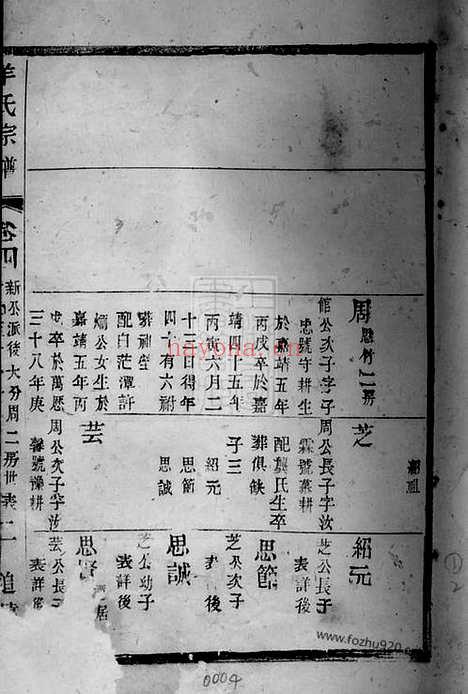 周
二房
館公次子字子
忠號守耕生
於嘉靖五年
丙戌卒於嘉
靖四十五年
丙寅六月二
十三日得年
四十有六祔
葬祖塋
配白茫潭許
公女生於
嘉靖五年丙
戌卒於萬歷
三十八年庚
芝
周公長子字汝
霖號慕耕
配龔氏生卒
葬俱缺
子三
紹元
思節
思誠
芸
周公次子字汝
馨號豫耕
紹元
芝公長子
表詳後
思節
芝公次子
表 後
思誠
芝公幼子
表詳後
思賢
居
芸公長
表詳後
羊氏宗譜
卷四
新公派後大分周二房世表
二
nayona.cn
www.fozhu920.com
0004